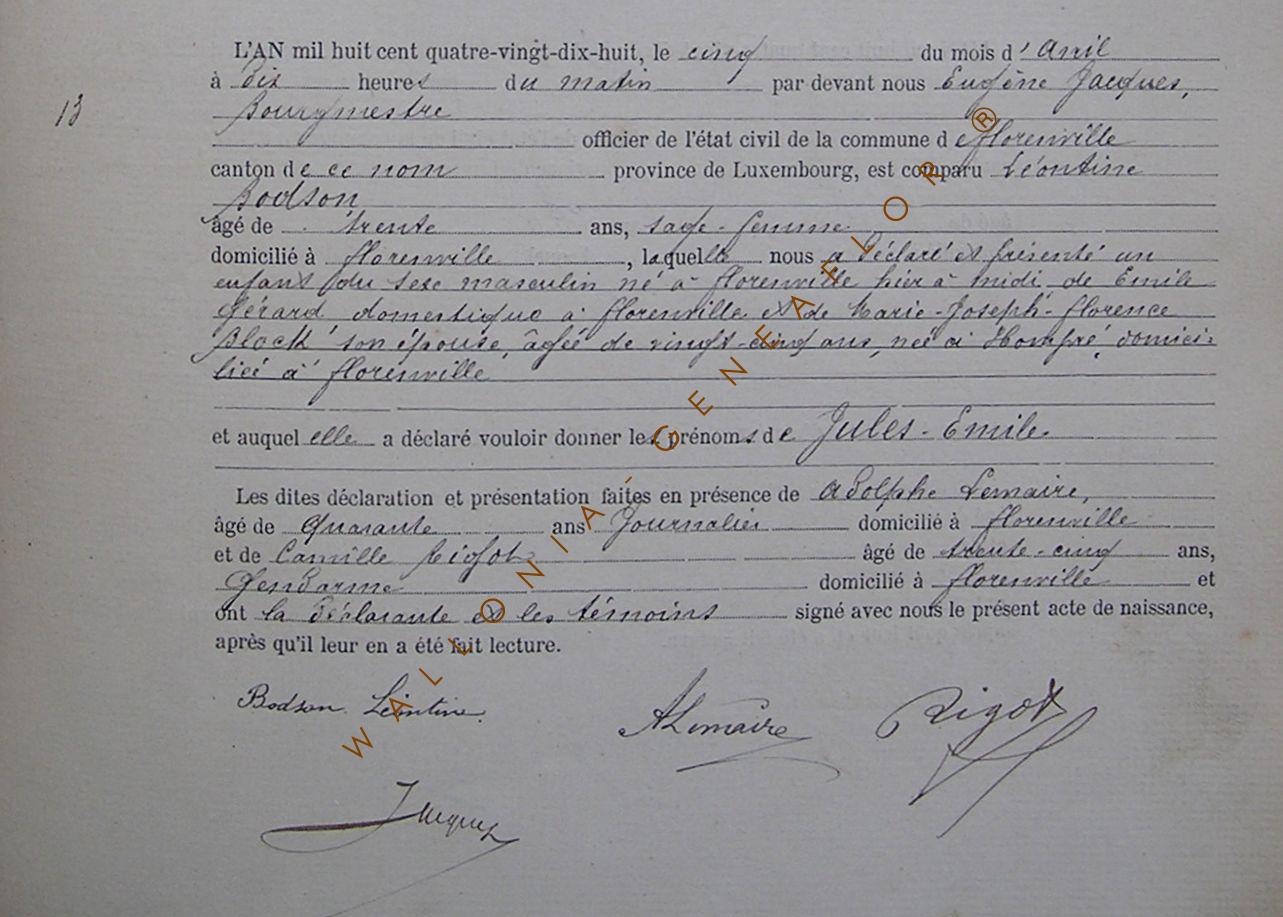 L'AN mil huit cent quatre-vingt-dix-huit, le cinq du mois d'Avril
à Dix heures du matin par devant nous Eugène Jacques,
13
Bourgmestre
officier de l'état civil de la commune de florenville
canton de ce nom province de Luxembourg, est comparu Léontine
Bodson
âgé de trente ans, sage-femme
domicilié à florenville, laquelle nous a Déclaré et présenté un
enfant du sexe masculin né à florenville hier à midi de Emile
Gérard domestique à florenville et de Marie-Joseph-florence
Block son épouse, âgée de vingt-cinq ans, née à domici=
liée à florenville
et auquel elle a déclaré vouloir donner les prénoms de Jules-Emile.
Les dites déclaration et présentation faites en présence de Adolphe Lemaire,
âgé de Quarante ans Journalier domicilié à florenville
et de Camille Rigot âgé de trente-cinq ans,
Gendarme domicilié à florenville et
ont la Déclarante et les témoins signé avec nous le présent acte de naissance,
après qu'il leur en a été fait lecture.
Bodson Léontine.
ALemaire
Rigot
Jacques
WALLONIA-GENEAELOR®